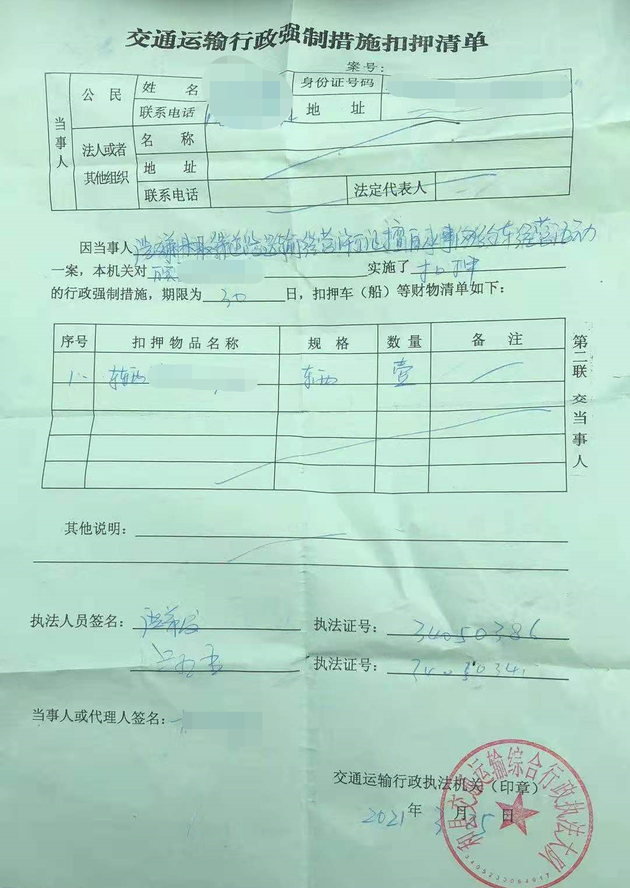 交通运输行政强制措施扣押清单
案号：
当事人
公民
姓名
身份证号码
联系电话
地址
法人或者其他组织
名称
地址
联系电话
法定代表人
因当事人涉嫌未取得道路运输经营许可证擅自从事网约车经营活动
一案，本机关对
实施了 扣押
的行政强制措施，期限为 30 日，扣押车（船）等财物清单如下：
序号 扣押物品名称 规格 数量 备注
1 壹
第二联 交当事人
其他说明：
执法人员签名：
执法证号： 34050386
执法证号：
当事人或代理人签名：
交通运输行政执法机关（印章）
2021 年 3 月 25 日
和县交通运输综合行政执法大队